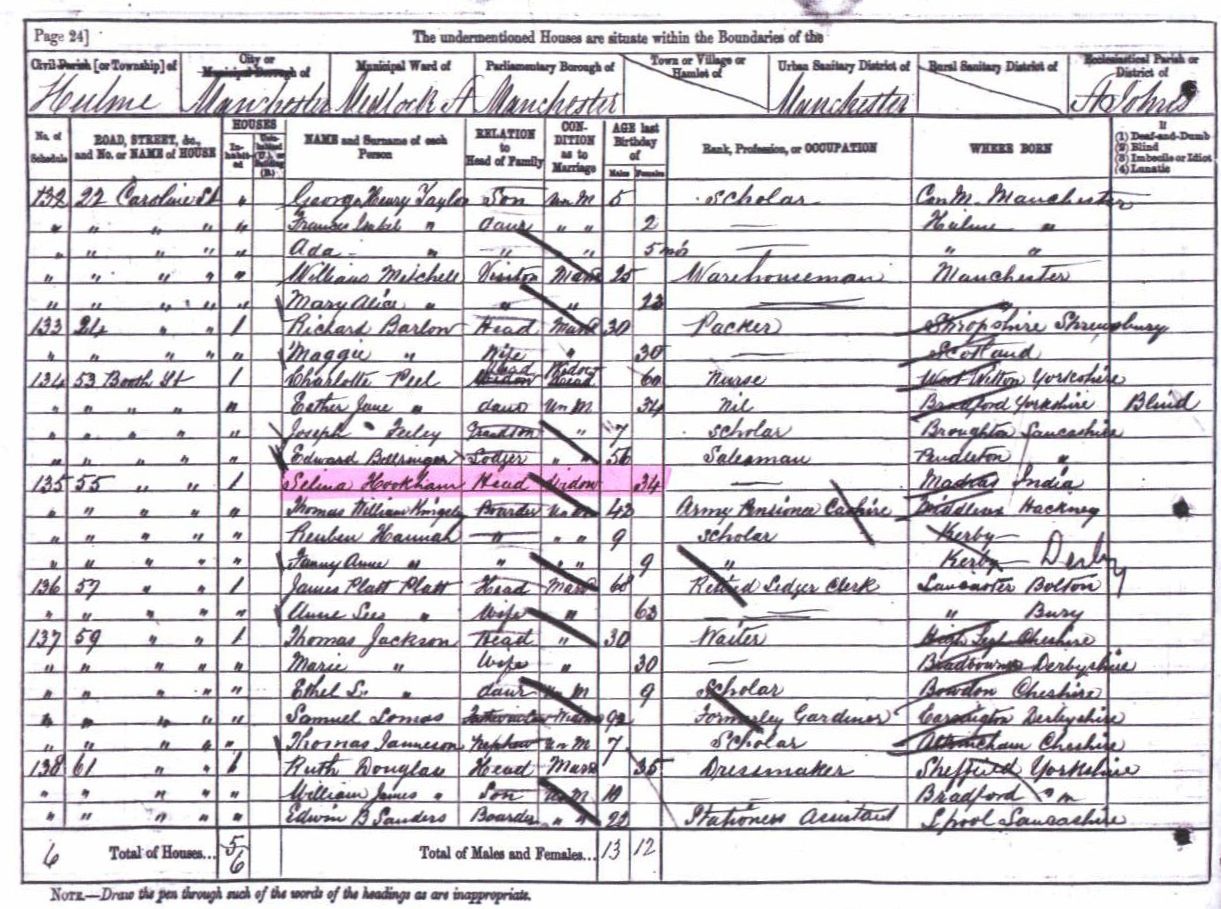 Page 24]
The undermentioned Houses are situate within the Boundaries of the
Civil Parish [or Township] of City or Municipal Borough of Municipal Ward of Parliamentary Borough of Town or Village or Hamlet of Urban Sanitary District of Rural Sanitary District of Ecclesiastical Parish or District of
Hulme Manchester Medlock St Manchester Manchester St Johns
No. of Schedule ROAD, STREET, &c., and No. or NAME of HOUSE HOUSES In-habit-ed Unin-habited (U.), or Building (B.) NAME and Surname of each Person RELATION to Head of Family CON-DITION as to Marriage AGE last Birthday of Males Females Rank, Profession, or OCCUPATION WHERE BORN If (1) Deaf-and-Dumb (2) Blind (3) Imbecile or Idiot (4) Lunatic
132 22 Caroline St " George Henry Taylor Son Un M 5 Scholar Manchester
" " " " " Frances Isabel " daur " " 2 — Hulme "
" " " " " Ada — " — " " 5 mos — " "
" " " " " William Mitchell Visitor Marr 25 Warehouseman Manchester
" " " " " Mary Alice " " " 22 — "
133 24 " " 1 Richard Barlow Head Marr 30 Packer Shropshire Shrewsbury
" " " " " Maggie " Wife " 30 — Scotland
134 53 Booth St 1 Charlotte Peel Head Widow 60 Nurse West Witton Yorkshire
" " " " " Esther Jane " daur Un M 34 Nil Bradford Yorkshire Blind
" " " " " Joseph Feeley Grandson " 7 Scholar Broughton Lancashire
" " " " " Edward Bellringer Lodger " " 56 Salesman Pendleton "
135 55 " " 1 Selina Hookham Head Widow 34 — Madras India
" " " " " Thomas William Boarder Un M 42 Army Pensioner Middlesex Hackney
" " " " Reuben Hannah — " " " 9 Scholar Kerby
" " " " " Fanny Anne " " " 9 " Kerby Derby
136 57 " " 1 James Platt Platt Head Marr 68 Retired Ledger Clerk Lancaster Bolton
" " " " " Anne Lees " Wife " 62 — " Bury
137 59 " " 1 Thomas Jackson Head " 30 Waiter High Legh Cheshire
" " " " " Marie " Wife " 30 — Bradbourne Derbyshire
" " " " " Ethel L. " daur Un M 9 Scholar Bowdon Cheshire
" " " " " Samuel Lomas Fatherinlaw Widr 92 Formerley Gardiner Carsington Derbyshire
" " " " " Thomas Jameson Nephew Un M 7 Scholar Altrincham Cheshire
138 61 " " 1 Ruth Douglas Head Marr 35 Dressmaker Sheffield Yorkshire
" " " " " William James " Son Un M 10 — Bradford "
" " " " " Edwin B Sanders Boarder " " 22 Stationers Assistant Lpool Lancashire
6 Total of Houses... 5/6 Total of Males and Females... 13 12
NOTE.—Draw the pen through such of the words of the headings as are inappropriate.